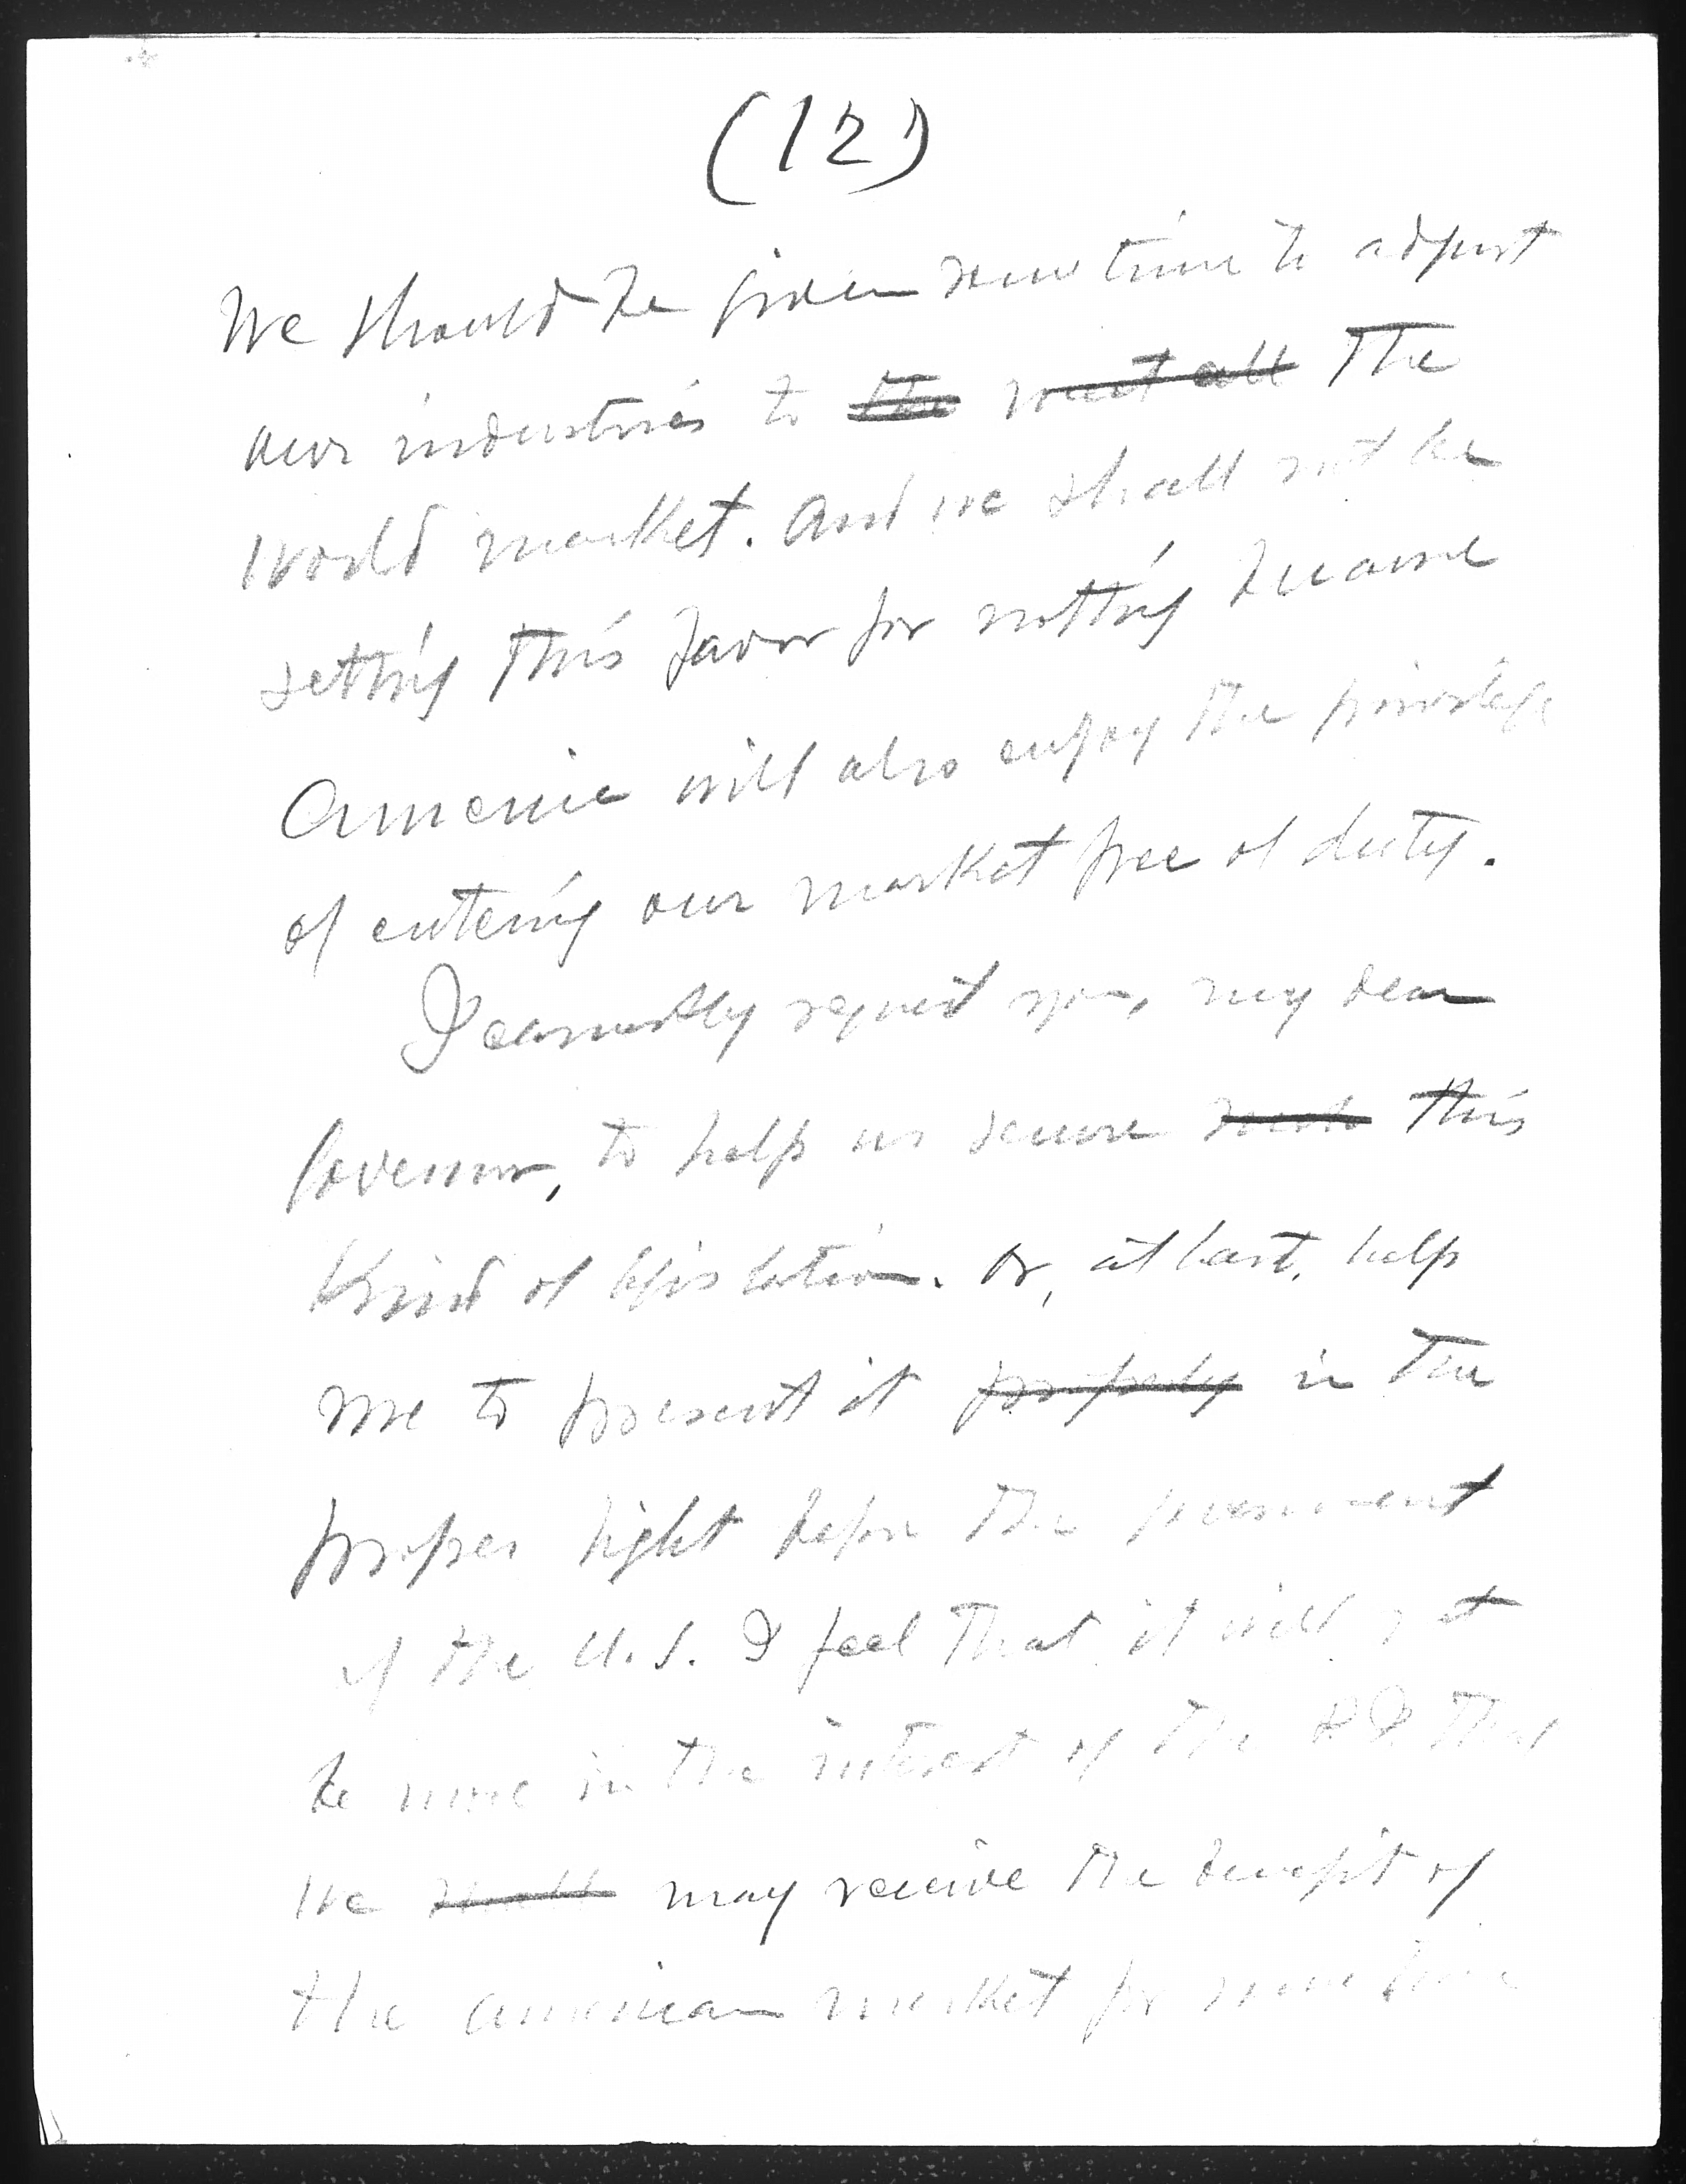 (12)
We should be given some time to adjust
our industries to the the
world market. And we shall not be
getting this favor for nothing because
America will also enjoy the privilege
of entering our market free of duty.
I earnestly request you, my dear
Governor, to help us secure such this
kind of legislation. Or, at least, help
me to present it properly in the
proper light before the government
of the U.S. I feel that it will not
be more in the interest of the that
we shall may receive the benefit of
the American market for some time